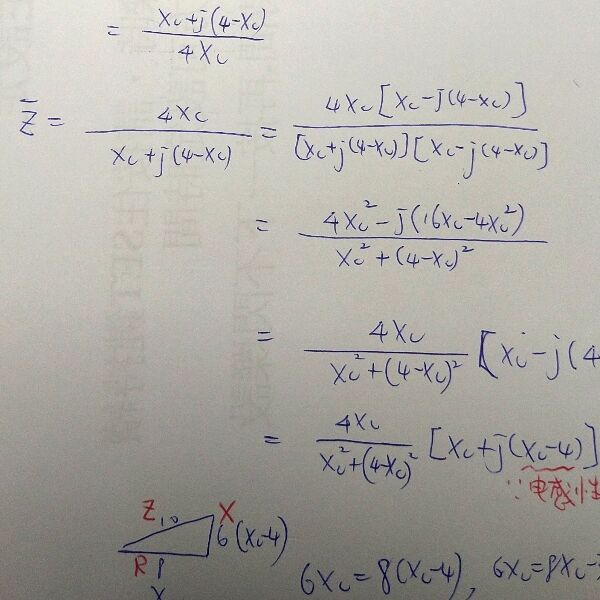 = \frac{X_C+j(4-X_C)}{4X_C}
\bar{Z} = \frac{4X_C}{X_C+j(4-X_C)} = \frac{4X_C[X_C-j(4-X_C)]}{[X_C+j(4-X_C)][X_C-j(4-X_C)]}
= \frac{4X_C^2-j(16X_C-4X_C^2)}{X_C^2+(4-X_C)^2}
= \frac{4X_C}{X_C^2+(4-X_C)^2}[X_C-j(4
= \frac{4X_C}{X_C^2+(4-X_C)^2}[X_C+j(X_C-4)]
∵电感性
Z 10 X
6(X_C-4)
R 8
X
6X_C=8(X_C-4), 6X_C=8X_C-